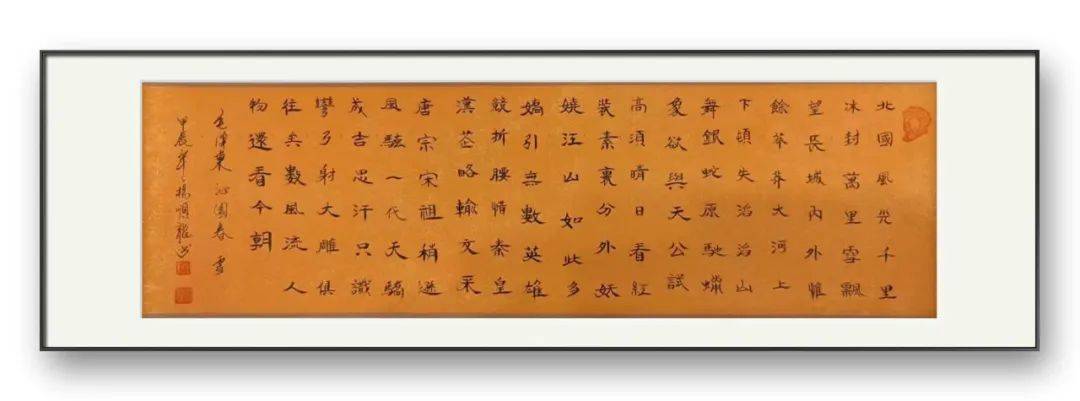 北國風光千里
冰封萬里雪飄
望長城內外惟
餘莽莽大河上
下頓失滔滔山
舞銀蛇原馳蠟
象欲與天公試
高須晴日看紅
裝素裹分外妖
嬈江山如此多
嬌引無數英雄
競折腰惜秦皇
漢武略輸文采
唐宗宋祖稍遜
風騷一代天驕
成吉思汗只識
彎弓射大雕俱
往矣數風流人
物還看今朝
毛澤東 沁園春 雪
甲辰年 楊順